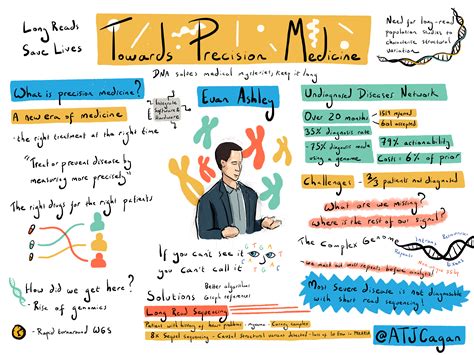 Long Reads
Save Lives
Towards Precision Medicine
DNA solves medical mysteries, keep it long
Need for long-read
population studies to
characterise structural
variation
@ATJCagan
What is precision medicine?
A new era of medicine
- the right treatment at the right time
"Treat or prevent disease by
measuring more precisely"
The right drugs for the right patients
How did we get here?
- Rise of genomics
- Rapid turnaround WGS
Integrate
Software &
Hardware
Euan Ashley
If you can't see it
you can't call it
Better algorithms
Solutions
Graph references
Long Read Sequencing
Patient with history of heart problems
8x Sequel sequencing
Undiagnosed Diseases Network
Over 20 months
1519 referred
601 accepted
35% diagnosis rate
- 75% diagnosis made
using a genome
79% actionability
Costs = 6% of prior
Challenges - 2/3 patients not diagnosed
What are we missing?
Where is the rest of our signal?
The Complex Genome
Repeats
- we mask out most repeats before analysis
Most Severe disease is not diagnosable
with short read sequencing!
@ATJCagan